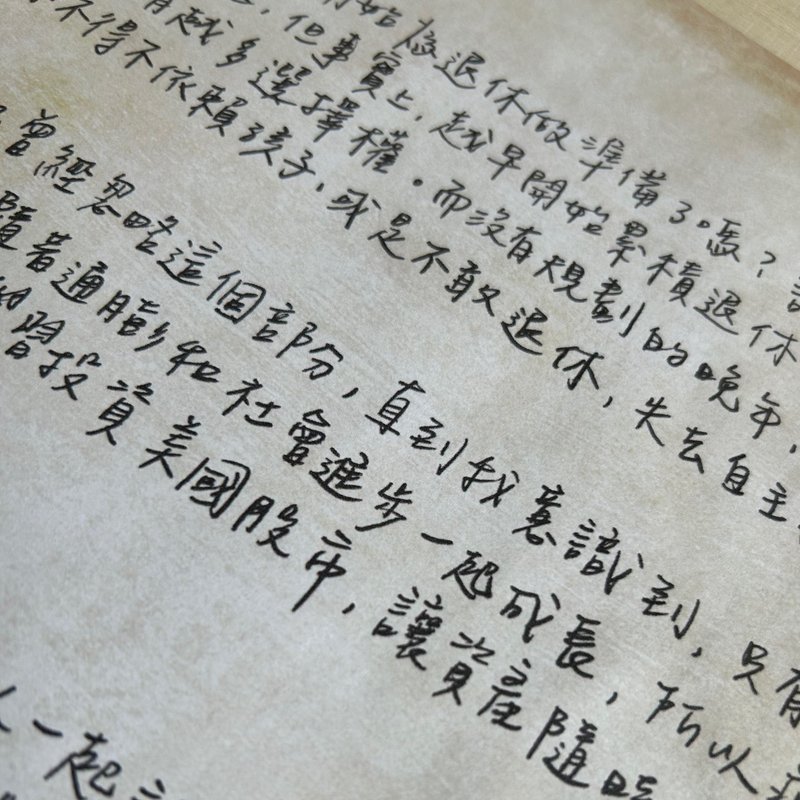 始為退休做準備了嗎？
，但事實上，越早開始累積退休
有越多選擇權。而沒有規劃的晚年，
不得不依賴孩子，或是不敢退休，失去自主
曾經忽略這個部分，直到我意識到，只有
隨著通膨和社會進步一起成長，所以
投資美國股市，讓資產隨時
一起